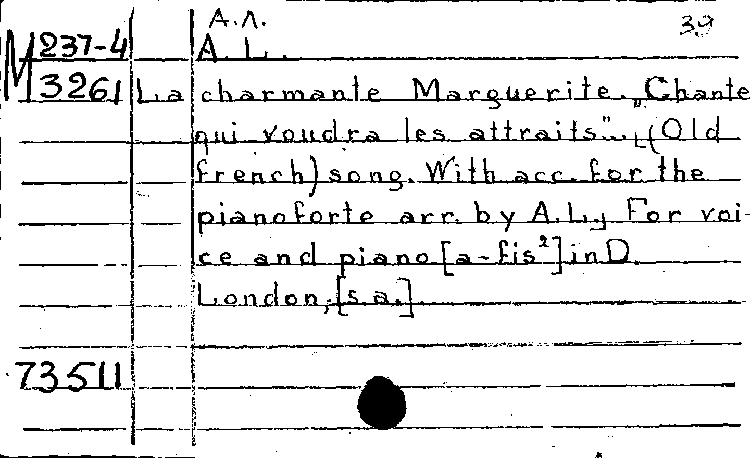 А.Л. 39
M 237-4 A. L.
3261 La charmante Marguerite. „Chante
qui voudra les attraits"... [(Old
french) song. With acc. for the
pianoforte arr. by A.L., For voi-
ce and piano [a-fis²] in D.
London, [s.a.]
73511